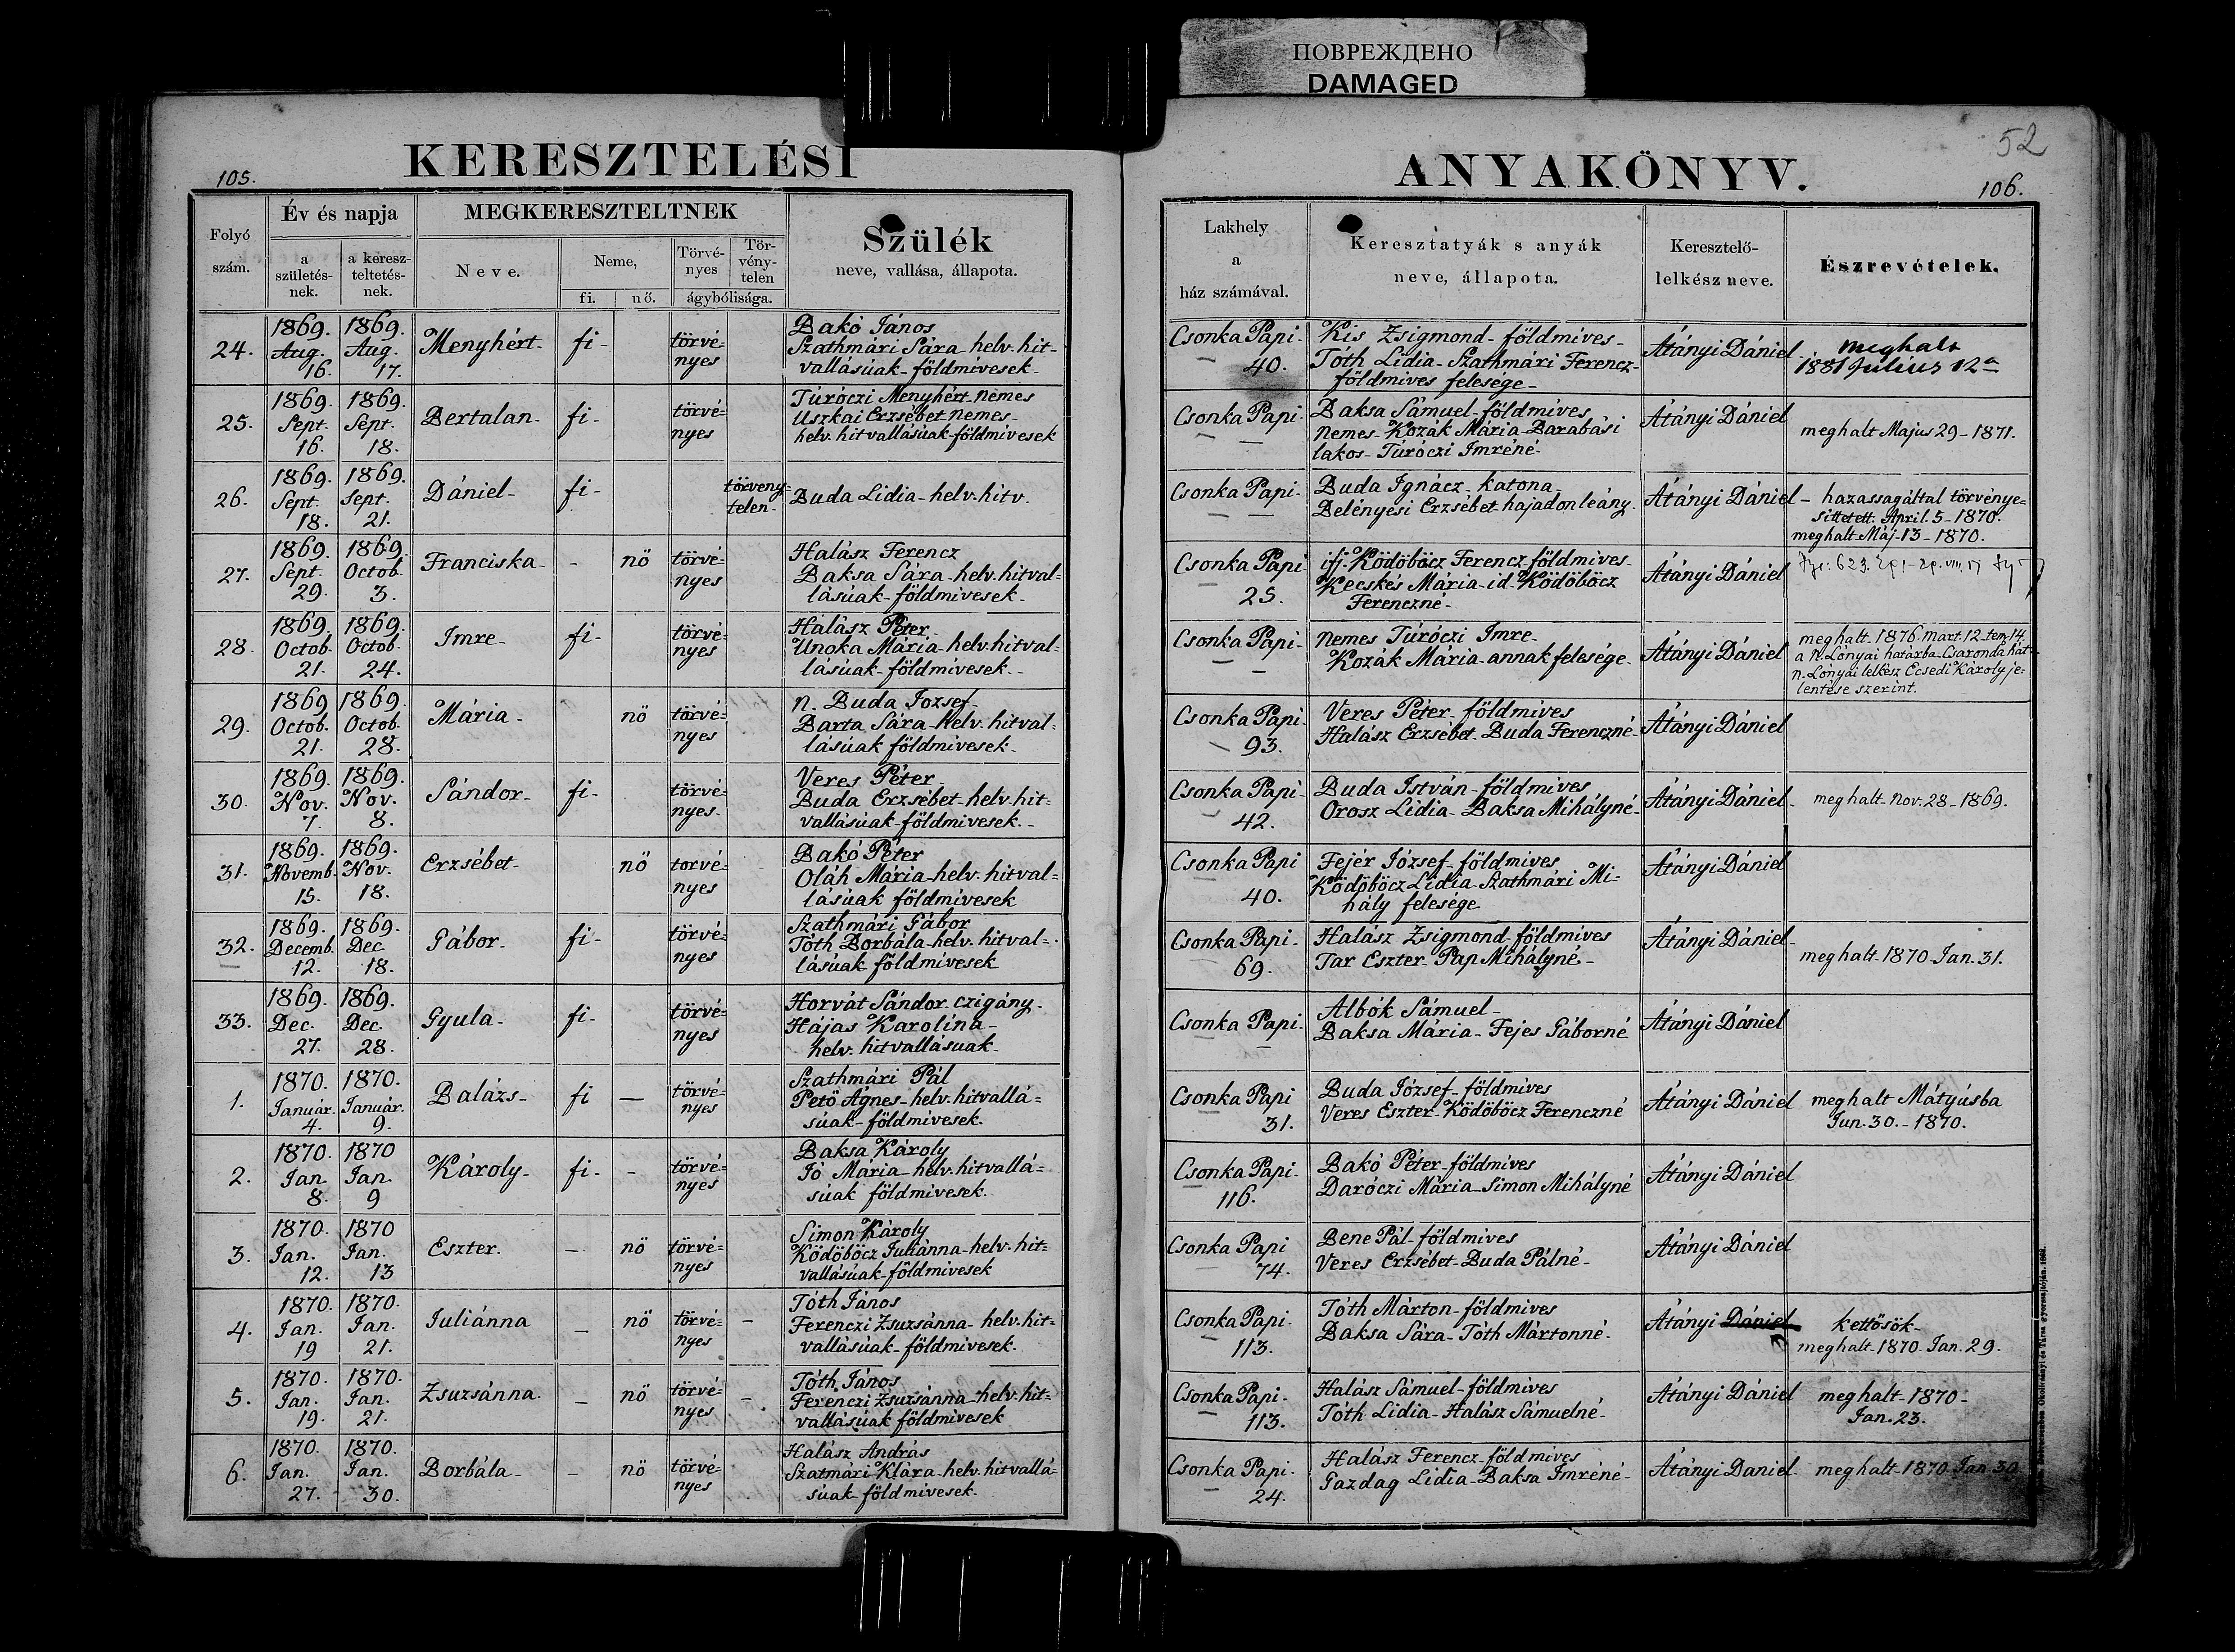 ПОВРЕЖДЕНО
DAMAGED
52
105.
KERESZTELÉSI
ANYAKÖNYV.
106.
Folyó szám.
Év és napja
a születés-nek.
a keresz-teltetés-nek.
MEGKERESZTELTNEK
Neve.
Neme,
fi.
nő.
Törvé-nyes
Tör-vény-telen
ágybólisága.
Szülék
neve, vallása, állapota.
Lakhely
a
ház számával.
Keresztatyák s anyák
neve, állapota.
Keresztelő-
lelkész neve.
Észrevételek.
24.
1869. Aug. 16.
1869. Aug. 17.
Menyhért-
fi-
törvé=
nyes
Bakó János
Szathmári Sára-helv. hit=
vallásúak-földmivesek-
Csonka Papi-
40.
Kis Zsigmond-földmives-
Tóth Lidia-Szathmári Ferencz-
földmives felesége-
Átányi Dániel
meghalt
1881 Július 12a
25.
1869. Sept. 16.
1869. Sept. 18.
Bertalan-
fi-
törvé=
nyes
Túróczi Menyhért nemes
Uszkai Erzsébet nemes-
helv. hitvallásúak-földmivesek
Csonka Papi-
Baksa Sámuel-földmives
nemes-Kozák Mária-Barabási
lakos-Túróczi Imréné-
Átányi Dániel
meghalt Majus 29-1871.
26.
1869. Sept. 18.
1869. Sept. 21.
Dániel-
fi-
törveny=
telen-
Buda Lidia-helv. hitv.
Csonka Papi-
Buda Ignácz-katona-
Belényesi Erzsébet hajadon leány.
Átányi Dániel
- hazassagáltal törvénye=
sittetett. April. 5-1870.
meghalt Máj-13-1870.
27.
1869. Sept. 29.
1869. Octob. 3.
Franciska-
-
nö
törvé=
nyes
Halász Ferencz
Baksa Sára-helv. hitval=
lásúak-földmivesek-
Csonka Papi
25.
ifj. Ködöböcz Ferencz földmives-
Kecskés Mária-id-Ködöböcz
Ferenczné-
Átányi Dániel
28.
1869. Octob. 21.
1869. Octob. 24.
Imre-
fi-
törvé=
nyes
Halász Péter
Unoka Mária-helv. hitval=
lásúak-földmivesek.-
Csonka Papi-
nemes Túróczi Imre-
Kozák Mária-annak felesége-
Átányi Dániel
meghalt. 1876. mart. 12. tem. 14.
a N. Lónyai határba-Csaronda hát-
n. Lónyai lelkész Ecsedi Károly je=
lentése szerint.
29.
1869 Octob. 21.
1869. Octob. 28.
Mária-
nö
törvé=
nyes
n. Buda Jozsef-
Barta Sára-helv. hitval=
lásúak földmivesek-
Csonka Papi-
93.
Veres Péter-földmives
Halász Erzsébet-Buda Ferenczné-
Átányi Dániel
30.
1869. Nov. 7.
1869. Nov. 8.
Sándor-
fi-
törvé=
nyes-
Veres Péter-
Buda Erzsébet-helv. hit=
vallásúak-földmivesek.-
Csonka Papi-
42.
Buda István-földmives
Orosz Lidia-Baksa Mihályné-
Átányi Dániel-
meghalt-Nov. 28-1869.
31.
1869. Novemb. 15.
1869. Nov. 18.
Erzsébet-
nö
torvé=
nyes
Bakó Péter
Oláh Mária-helv. hitval=
lásúak földmivesek
Csonka Papi
40.
Fejér József-földmives
Ködöböcz Lidia-Szathmári Mi=
hály felesége
Átányi Dániel
32.
1869. Decemb. 12.
1869. Dec. 18.
Gábor-
fi-
törvé=
nyes
Szathmári Gábor
Tóth Borbála-helv. hitval=
lásúak földmivesek
Csonka Papi-
69.
Halász Zsigmond-földmives
Tar Eszter-Pap Mihályné-
Átányi Dániel-
meghalt-1870-Jan. 31.
33.
1869. Dec. 27.
1869. Dec. 28.
Gyula-
fi-
törvé=
nyes
Horvát Sándor. czigány.
Hájas Karolina-
helv. hitvallásuak-
Csonka Papi-
Albók Sámuel-
Baksa Mária-Fejes Gáborné
Átányi Dániel
1.
1870. Január. 4.
1870. Január. 9.
Balázs-
fi
—
törvé=
nyes
Szathmári Pál
Petö Ágnes-helv. hitvallá=
súak-földmivesek.
Csonka Papi
31.
Buda József-földmives
Veres Eszter-Ködöböcz Ferenczné
Átányi Dániel
meghalt Mátyúsba
Jun. 30.-1870.
2.
1870. Jan. 8.
1870 Jan. 9
Károly-
fi-
-
törvé=
nyes
Baksa Károly
Jó Mária-helv. hitvallá=
súak földmivesek.
Csonka Papi-
116.
Bakó Péter-földmives
Daróczi Mária-Simon Mihályné
Átányi Dániel
3.
1870. Jan. 12.
1870 Jan. 13
Eszter.
-
nö
törvé=
nyes
Simon Károly
Ködöböcz Juliánna-helv. hit=
vallásúak-földmivesek
Csonka Papi
74.
Bene Pál-földmives
Veres Erzsébet-Buda Pálné-
Átányi Dániel
4.
1870. Jan. 19
1870. Jan. 21.
Juliánna
-
nö
törvé=
nyes
-
Tóth János
Ferenczi Zsuzsánna-helv. hit=
vallásúak-földmivesek.
Csonka Papi.
113.
Tóth Márton-földmives
Baksa Sára-Tóth Mártonné-
Átányi Dániel
kettösök-
meghalt-1870. Jan. 29.
5.
1870. Jan. 19.
1870. Jan. 21.
Zsuzsánna.
-
nö
törvé=
nyes
-
Tóth János
Ferenczi Zsuzsánna-helv. hit=
vallásúak földmivesek
Csonka Papi-
113.
Halász Sámuel-földmives
Tóth Lidia-Halász Sámuelné-
Átányi Dániel
meghalt-1870-
Jan. 23.
6.
1870. Jan. 27.
1870. Jan. 30.
Borbála-
-
nö
törvé=
nyes
Halász András
Szatmári Klára-helv. hitvallá=
súak-földmivesek.
Csonka Papi-
24.
Halász Ferencz-földmives
Gazdag Lidia-Baksa Imréné-
Átányi Daniel.
meghalt-1870 Jan 30